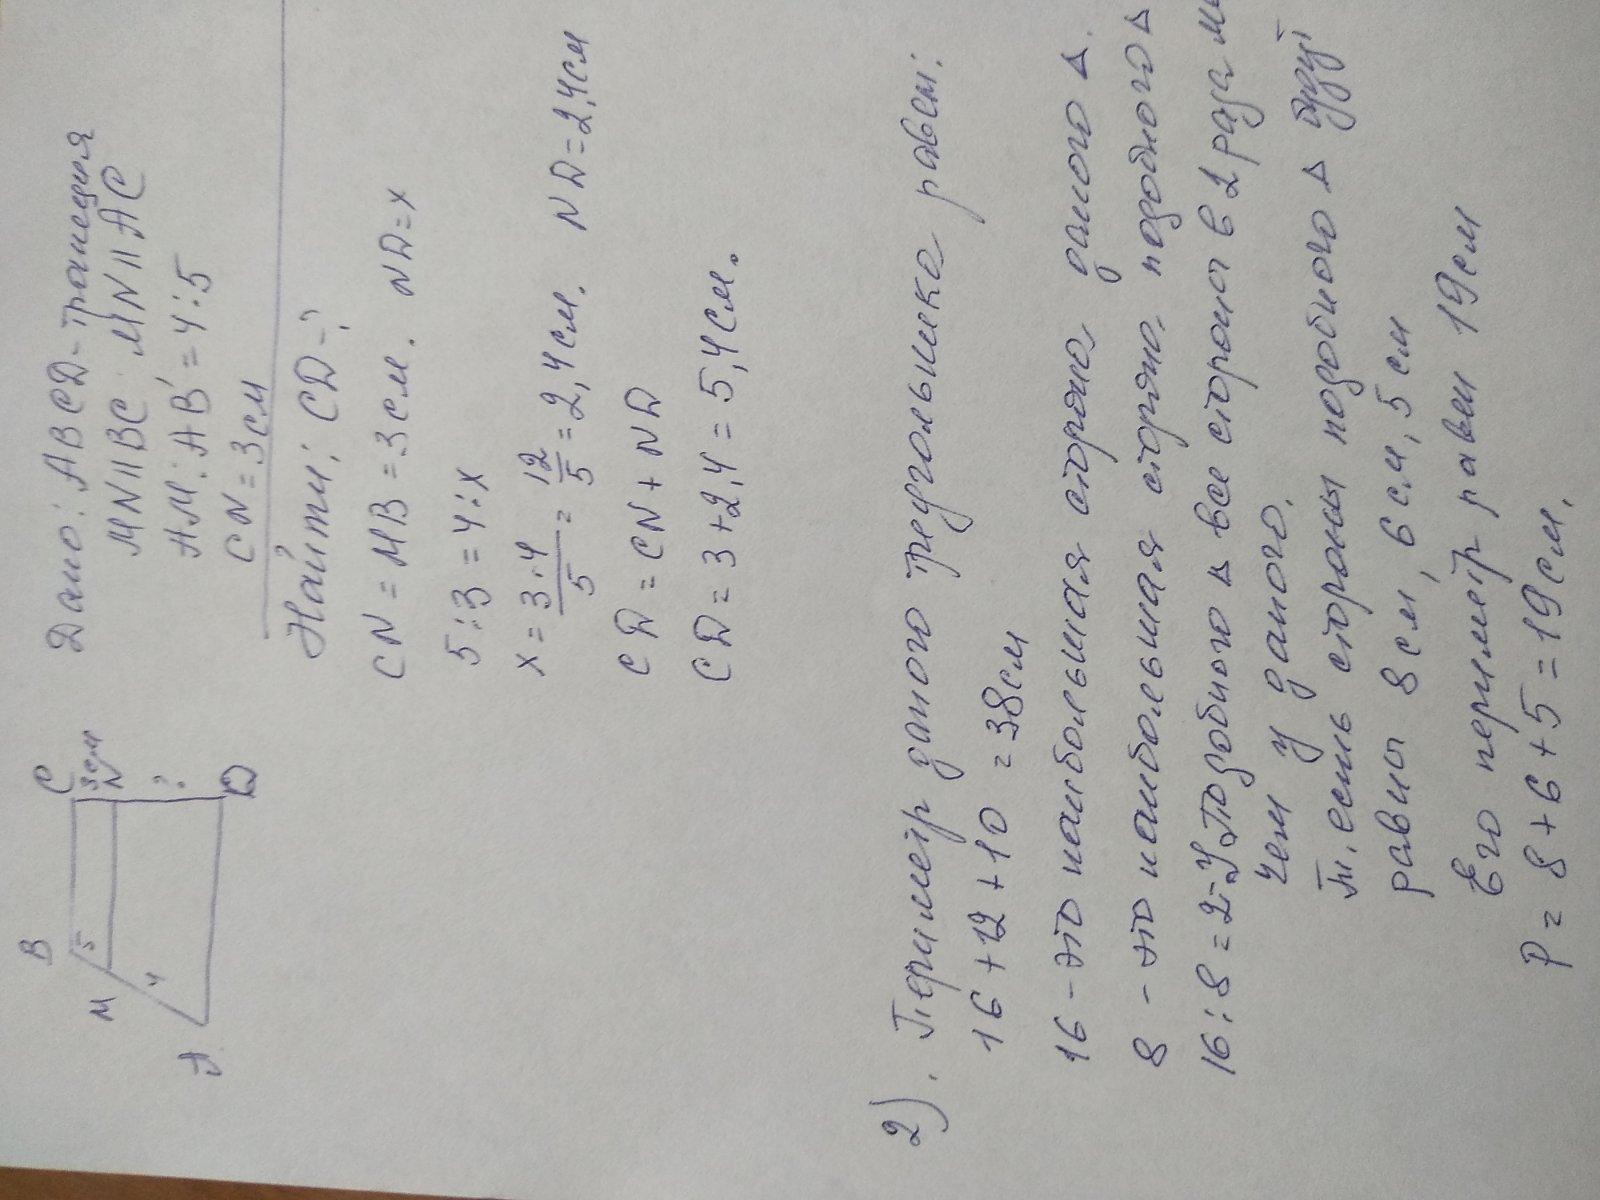 B
C
M
5
3см
N
4
?
A
D
Дано: ABCD - трапеция
MN || BC MN || AC
AM : AB = 4 : 5
CN = 3см
Найти: CD - ?
CN = MB = 3см. ND = x
5 : 3 = 4 : x
x = 3·4/5 = 12/5 = 2,4см. ND = 2,4см
CD = CN + ND
CD = 3 + 2,4 = 5,4см.
2). Периметр даного треугольника равен:
16 + 12 + 10 = 38см
16 - это наибольшая сторона даного Δ.
8 - это наибольшая сторона подобного Δ
16 : 8 = 2 - У подобного Δ все стороны в 2 раза
чем у даного.
Т. есть стороны подобного Δ будут
равны 8 см, 6 см, 5 см
Его периметр равен 19см
P = 8 + 6 + 5 = 19см.